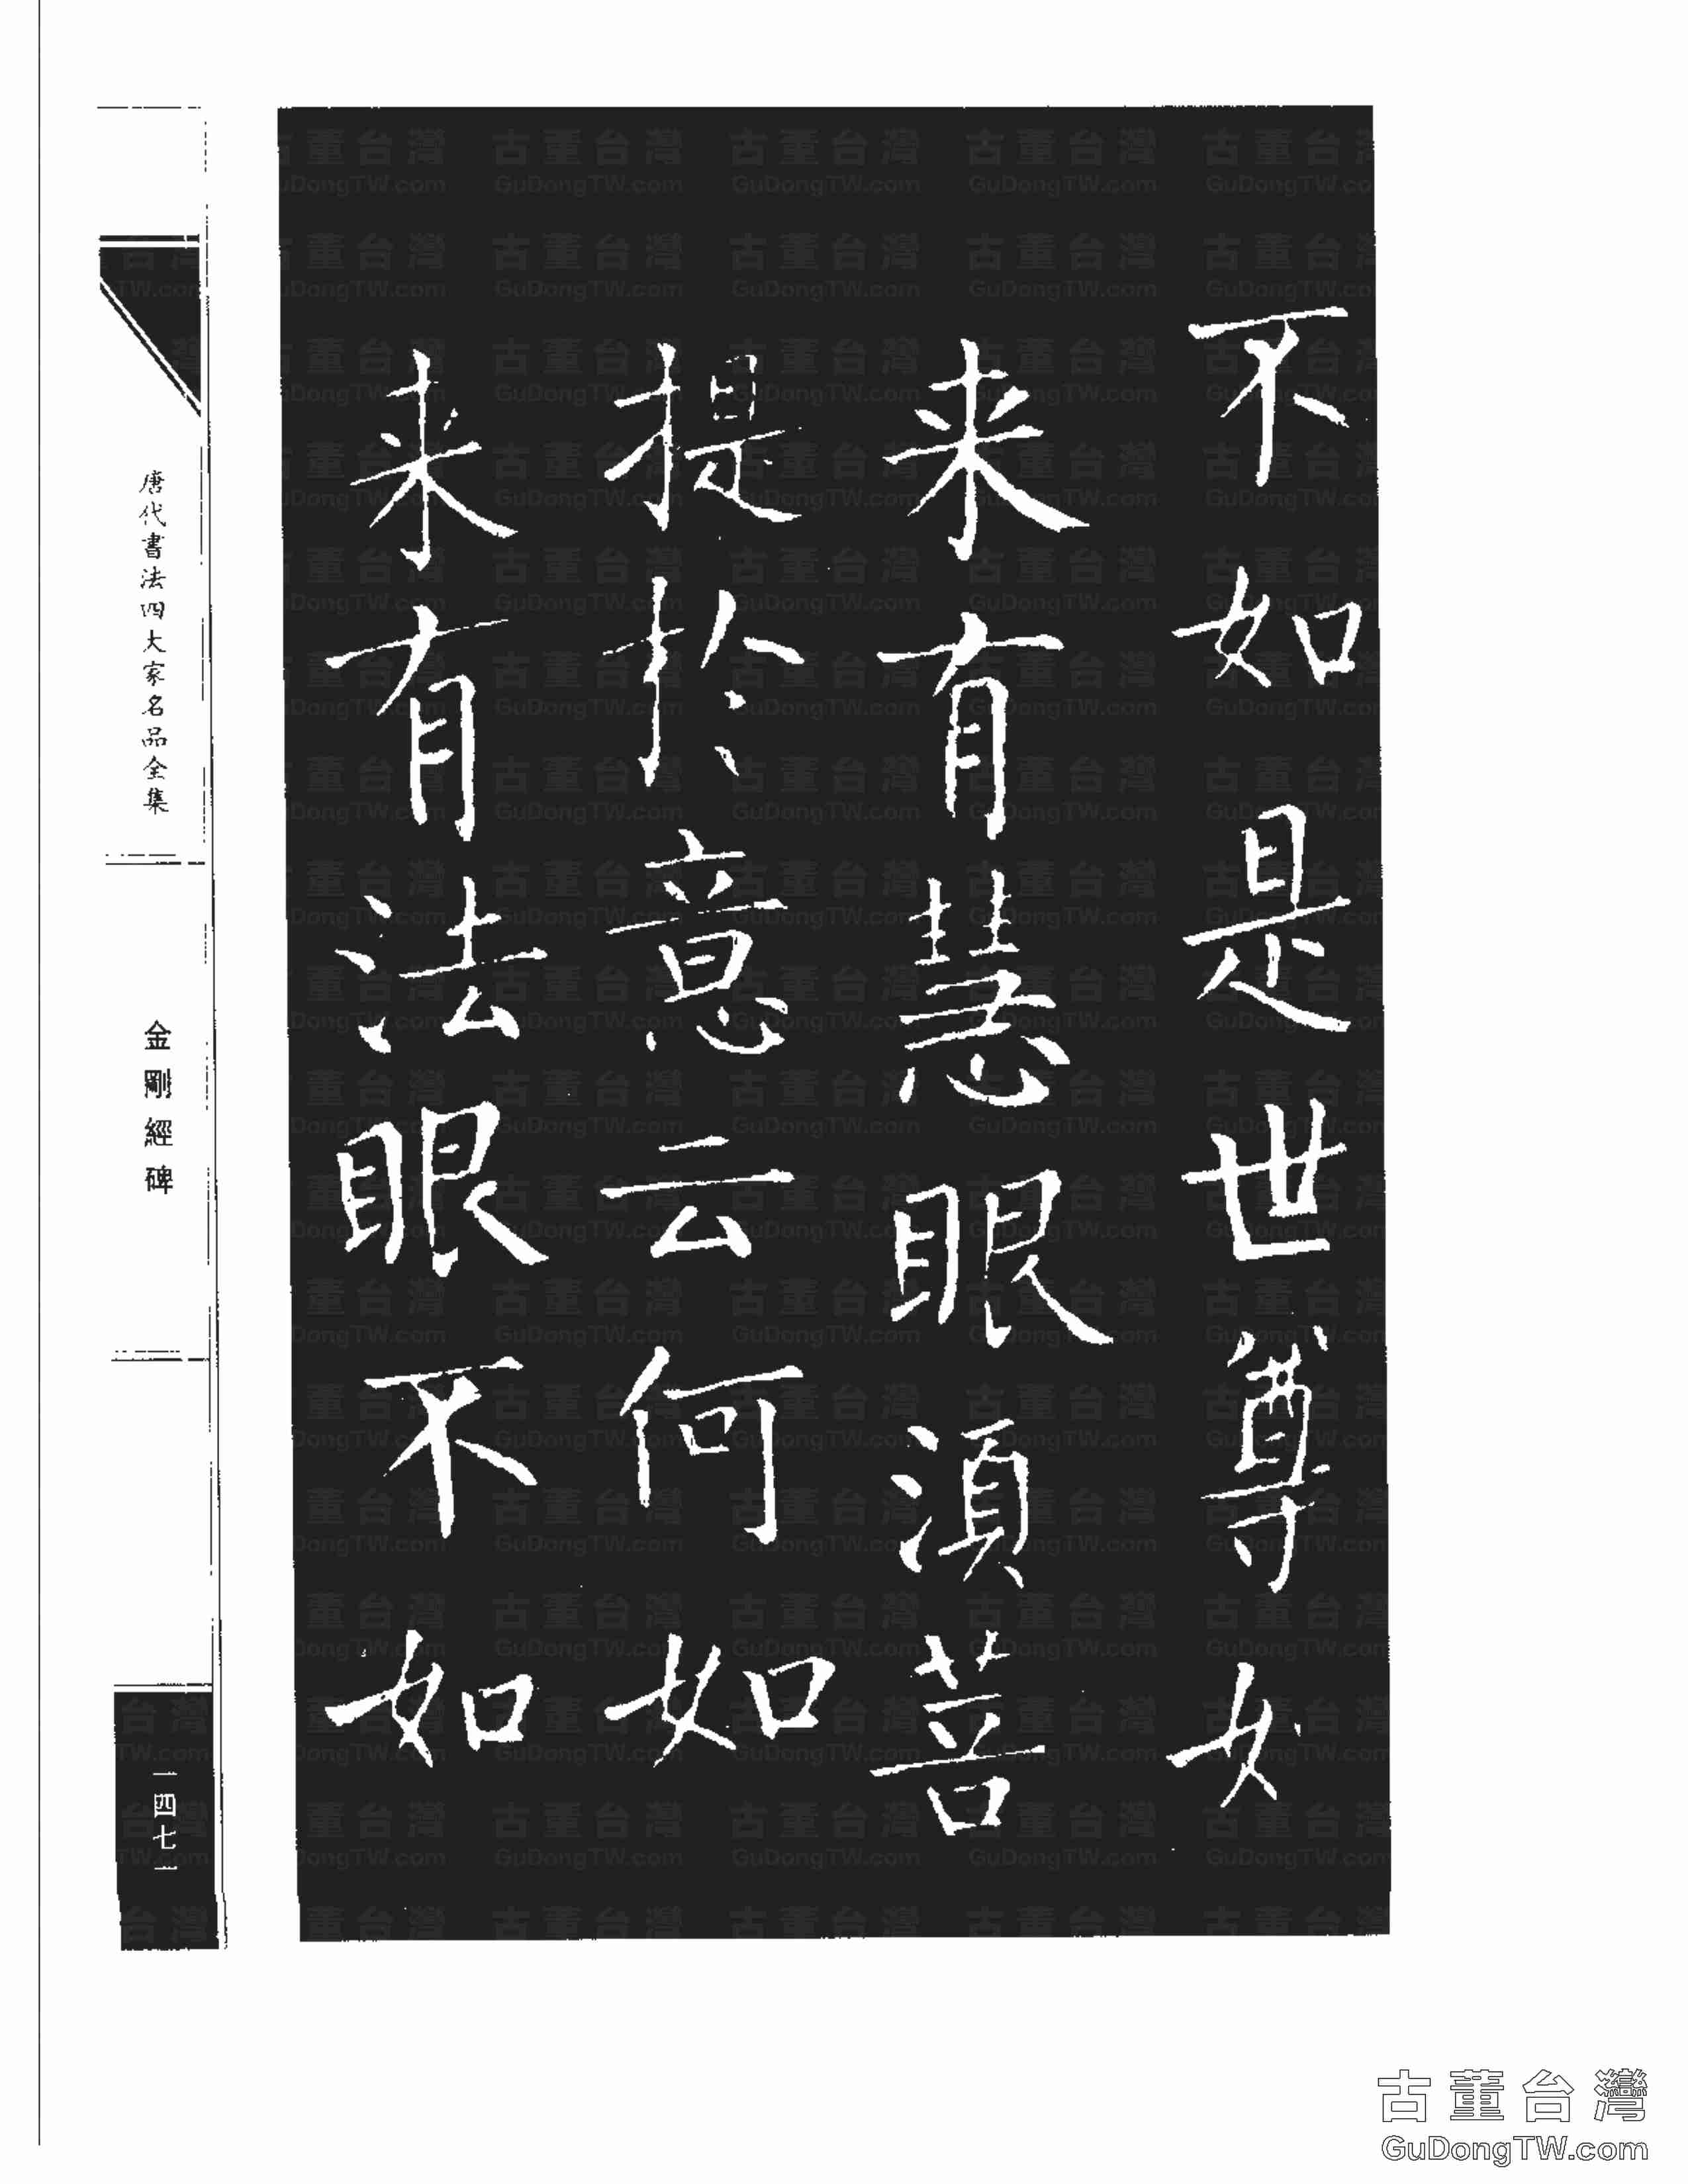 不如是世尊如
来有慧眼湏菩
提於意云何如
来有法眼不如
唐代書法四大家名品全集
金剛經碑
一四七一
古董台灣
GuDongTW.com